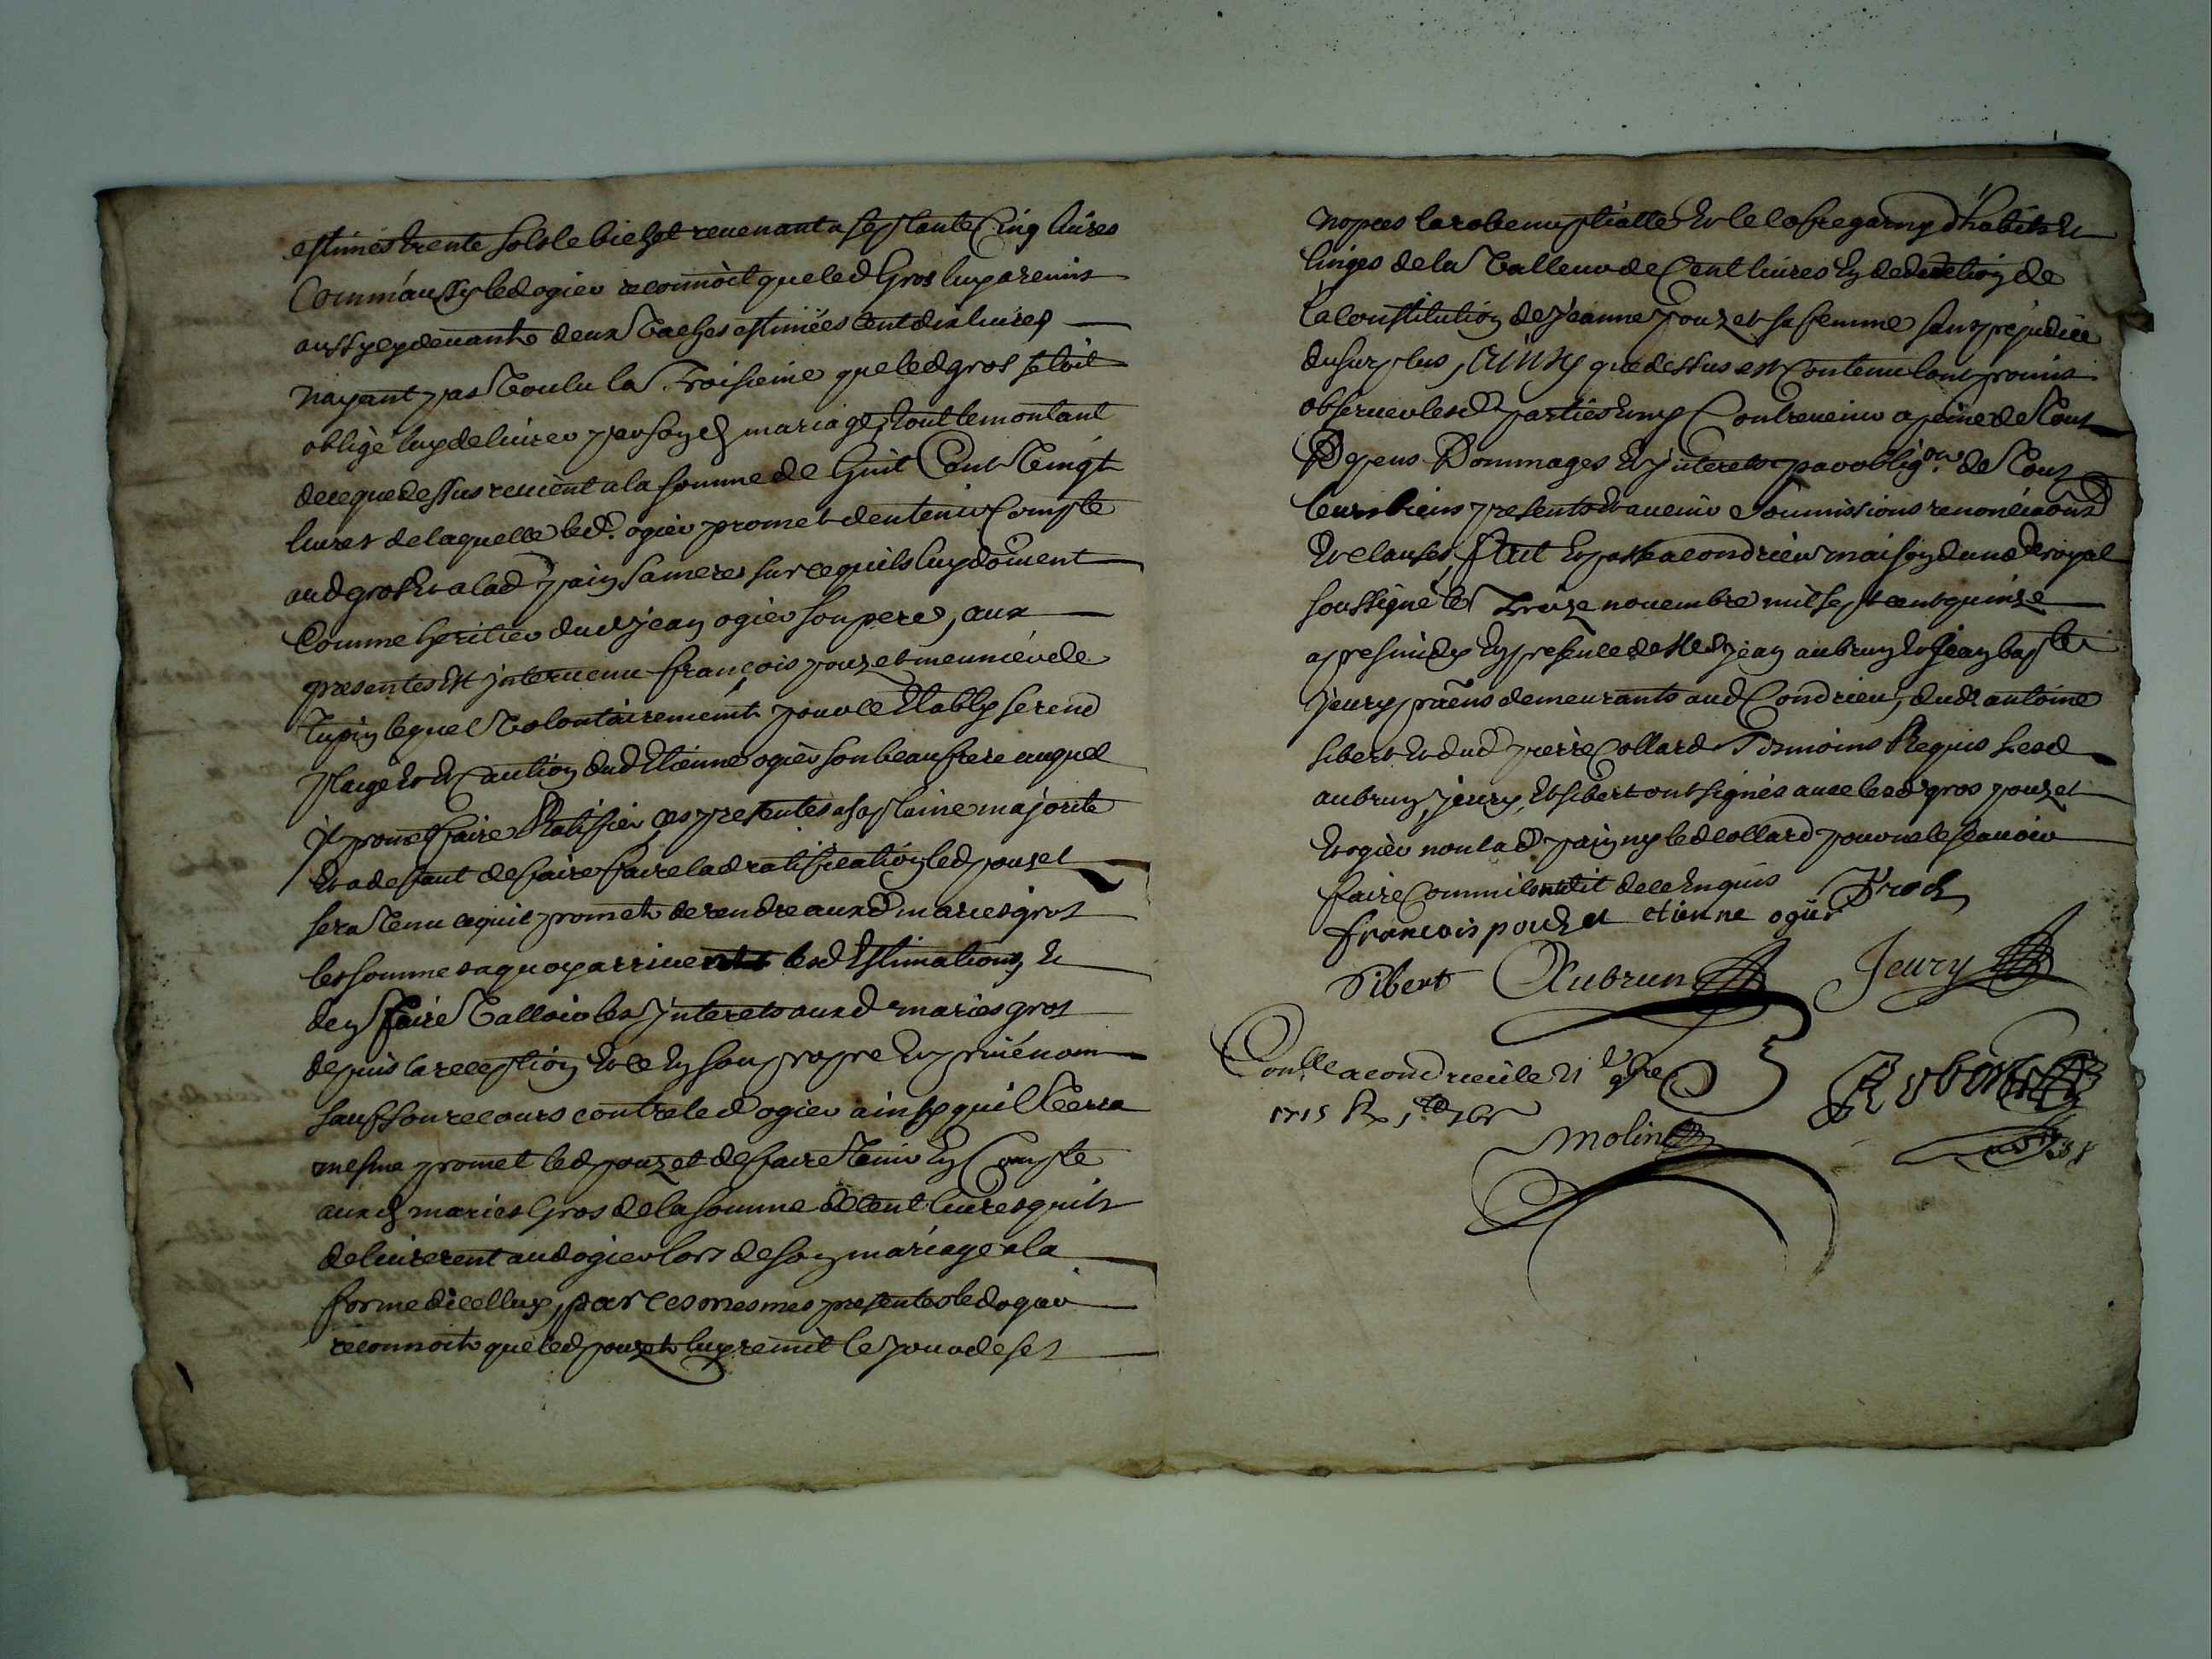 estimés trente sols le bichet revenant a septante Cinq livres
Comm'aussy led ogier reconnoit que led Gros luy a remis
aussy cy devant deux Vaches estimées cent dix livres
nayant pas Voulu la Troisieme que led gros setoit
obligé luy delivrer par son d mariage, tout le montant
de ce que dessus revient a la somme de huit Cent Vingt
livres de laquelle led. ogier promet den tenir Compte
aud gros et a lad pain sa mere sur ce quils luy doivent
Comme heritier dud jean ogier son pere, aux
presentes est intervenu françois pouzet meunier de
Tupin lequel Volontairement pour ce Estably se rend
plaige et Caution dud Etienne ogier son beaufrere auquel
il promet faire Ratiffier ces presentes a sa plaine majorité
et a deffaut de faire faire lad ratification led pouzet
sera Tenu ce quil promet de rendre auxd mariés gros
les sommes a quoy arrive lesd Estimations, et
den faire Valloir les interets auxd mariés gros
depuis la reception et ce En son propre et privé nom
sauf son recours contre led ogier ainsy quil Verra
mesme promet led pouzet de faire Tenir En Compte
auxd mariés Gros de la somme de Cent livres quils
delivrerent aud ogier lors de son mariage a la
forme dicelluy, par ces mesmes presentes led ogier
reconnoit que led pouzet luy remit le jour de ses
nopces la robe nuptialle et le cofre garny d'habits et
linges de la Valleur de Cent livres En deduction de
la Constitution de jeanne pouzet sa femme sans prejudice
du surplus, ainsy que dessus est Contenu l'ont promis
observer lesd parties et ny Contrevenir a peine de Tous
Depens Dommages et interets par oblig.on de Tous
leurs biens presents et avenir soumissions renonciaons
et clauses, fait et passé a condrieu maison du no.re royal
soussigné le Treize novembre mil sept cent quinze
apres midy En presence de Me jean aubrun et jean bapte
jeury praens demeurants aud Condrieu, dud antoine
sibert et dud pierre Collard Temoins Requis lesd
aubrun, jeury, et sibert ont signés avec lesd gros pouzet
et ogier non lad pain ny led collard pour ne le sçavoir
faire Comm'ils ont dit de ce Enquis
francois pouzet etienne ogier
Sibert Aubrun Jeury
Con.lle a condrieu le 21 9bre
1715
Molin